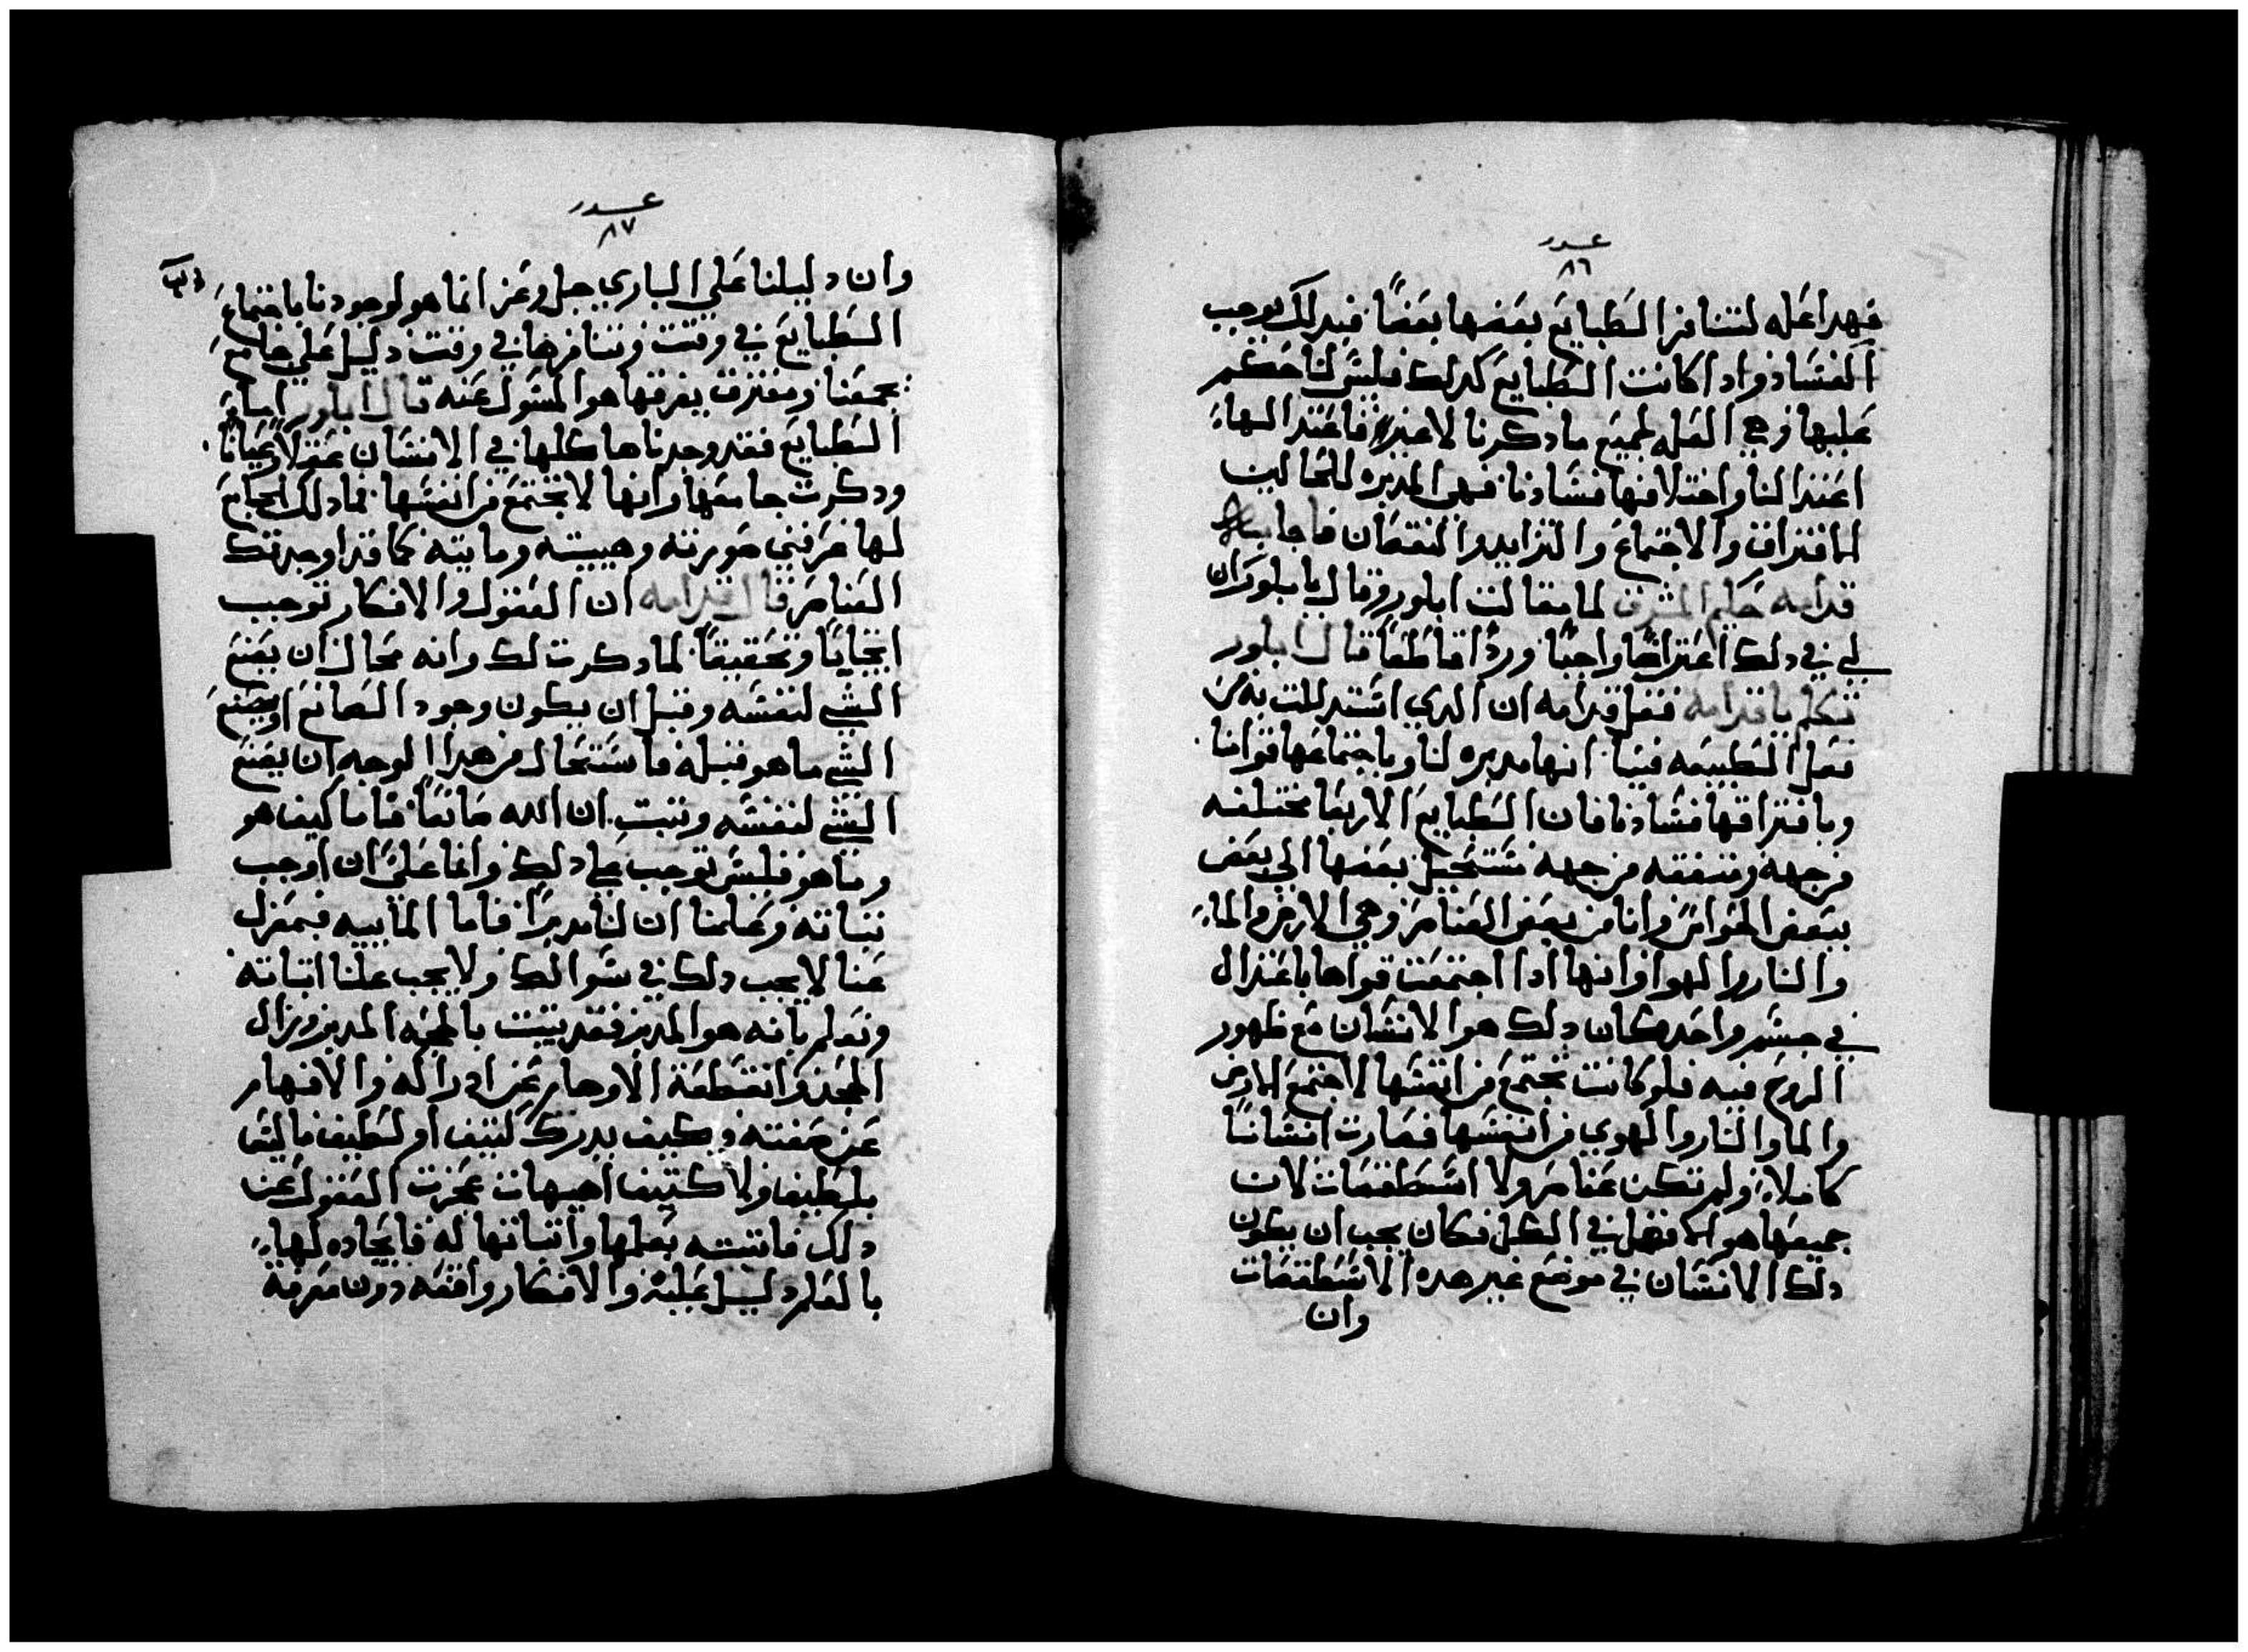 عدد
٨٦
فهدا عله لتنافر الطبايع بعضها بعضًا فبدلك يوجب
الفساد واداكانت الطبايع كدلك فليس لنا حكم
عليها وهي العله لجميع مادكرنا لاغير فاعتدالها
اعتدالنا واختلافها فسادنا فهي المدبره للحالين
الافتراق والاجتماع والتزايد والنقصان فاجابه
قدامه حكيم المشرق لما مقالت ابلور وقال يا بلور ان
لي في دلك اعتراضًا واجبًا وردًا قاطعًا قال ابلور
تكلم يا قدامه فقال قدامه ان الدي استدللت به من
فعل الطبيعه فينا انها مدبره لنا وباجتماعها قوامنا
وبافتراقها فسادنا فان الطبايع الاربعا مختلفه
من جهة ومتفقه من جهه تستحيل بعضها الي بعض
ببعض الحواس وانا من بعض العناصر وهي الارض والماء
والنار والهوا وانها ادا اجتمعت قواها باعتدال
في جسم واحد كان دلك هو الانسان مع ظهور
الروح فيه فلو كانت تجتمع من انفسها لاجتمع الارض
والما والنار والهوي من انفسها فصارت انسانًا
كاملاً ولم تكن عناصر ولا اسطقصات لان
جميعها هو الافضل في الكل فكان يجب ان يكون
دلك الانسان في موضع غير هده الاسطقصات
وان
عدد
٨٧
وان دليلنا علي الباري جل وعز انما هو لوجودنا باجتماع
الطبايع في وقت وتنافرها في وقت دليل علي جامع
يجمعنا ومفترق يفرقها هو المسول عنه قال ابلور اما
الطبايع فقد وجدناها كلها في الانسان عقلاً وعيانًا
ودكرت جامعها وانها لا تجتمع من انفسها فما دلك الجامع
لها عرفني صورته وهيبته وماييته كما قد اوجدتك
العناصر قال قدامه ان العقول والافكار توجب
ايجابًا وتحقيقًا لما دكرت لك وانه محال ان يصنع
الشي لنفسه وقبل ان يكون وجود الصانع او يصنع
الشي ماهو قبله فاستحال من هدا الوجه ان يصنع
الشي لنفسه وتبت ان الله صانعًا فاما كيف هو
وما هو فليس توجب علي دلك وانما علي ان اوجب
تباته وعلمنا ان لنا مدبرًا فاما الماييه فبمعزل
عنا لا يجب دلك في سوالك ولا يجب علنا اتباته
ونعلم بانه هو المدبر فقد يتبت بالحجه المدبر وزال
الجحد وانقطعة الاوهام عن ادراكه والافهام
عن صفته وكيف يدرك كتيف او لطيف ماليس
بلطيف ولا كتيف هيهات عجزت العقول عن
دلك فاتبته بعلمها واتباتها له فايجاده لها
بالعلم دليل عليه والافكار واقفه دون معرفة